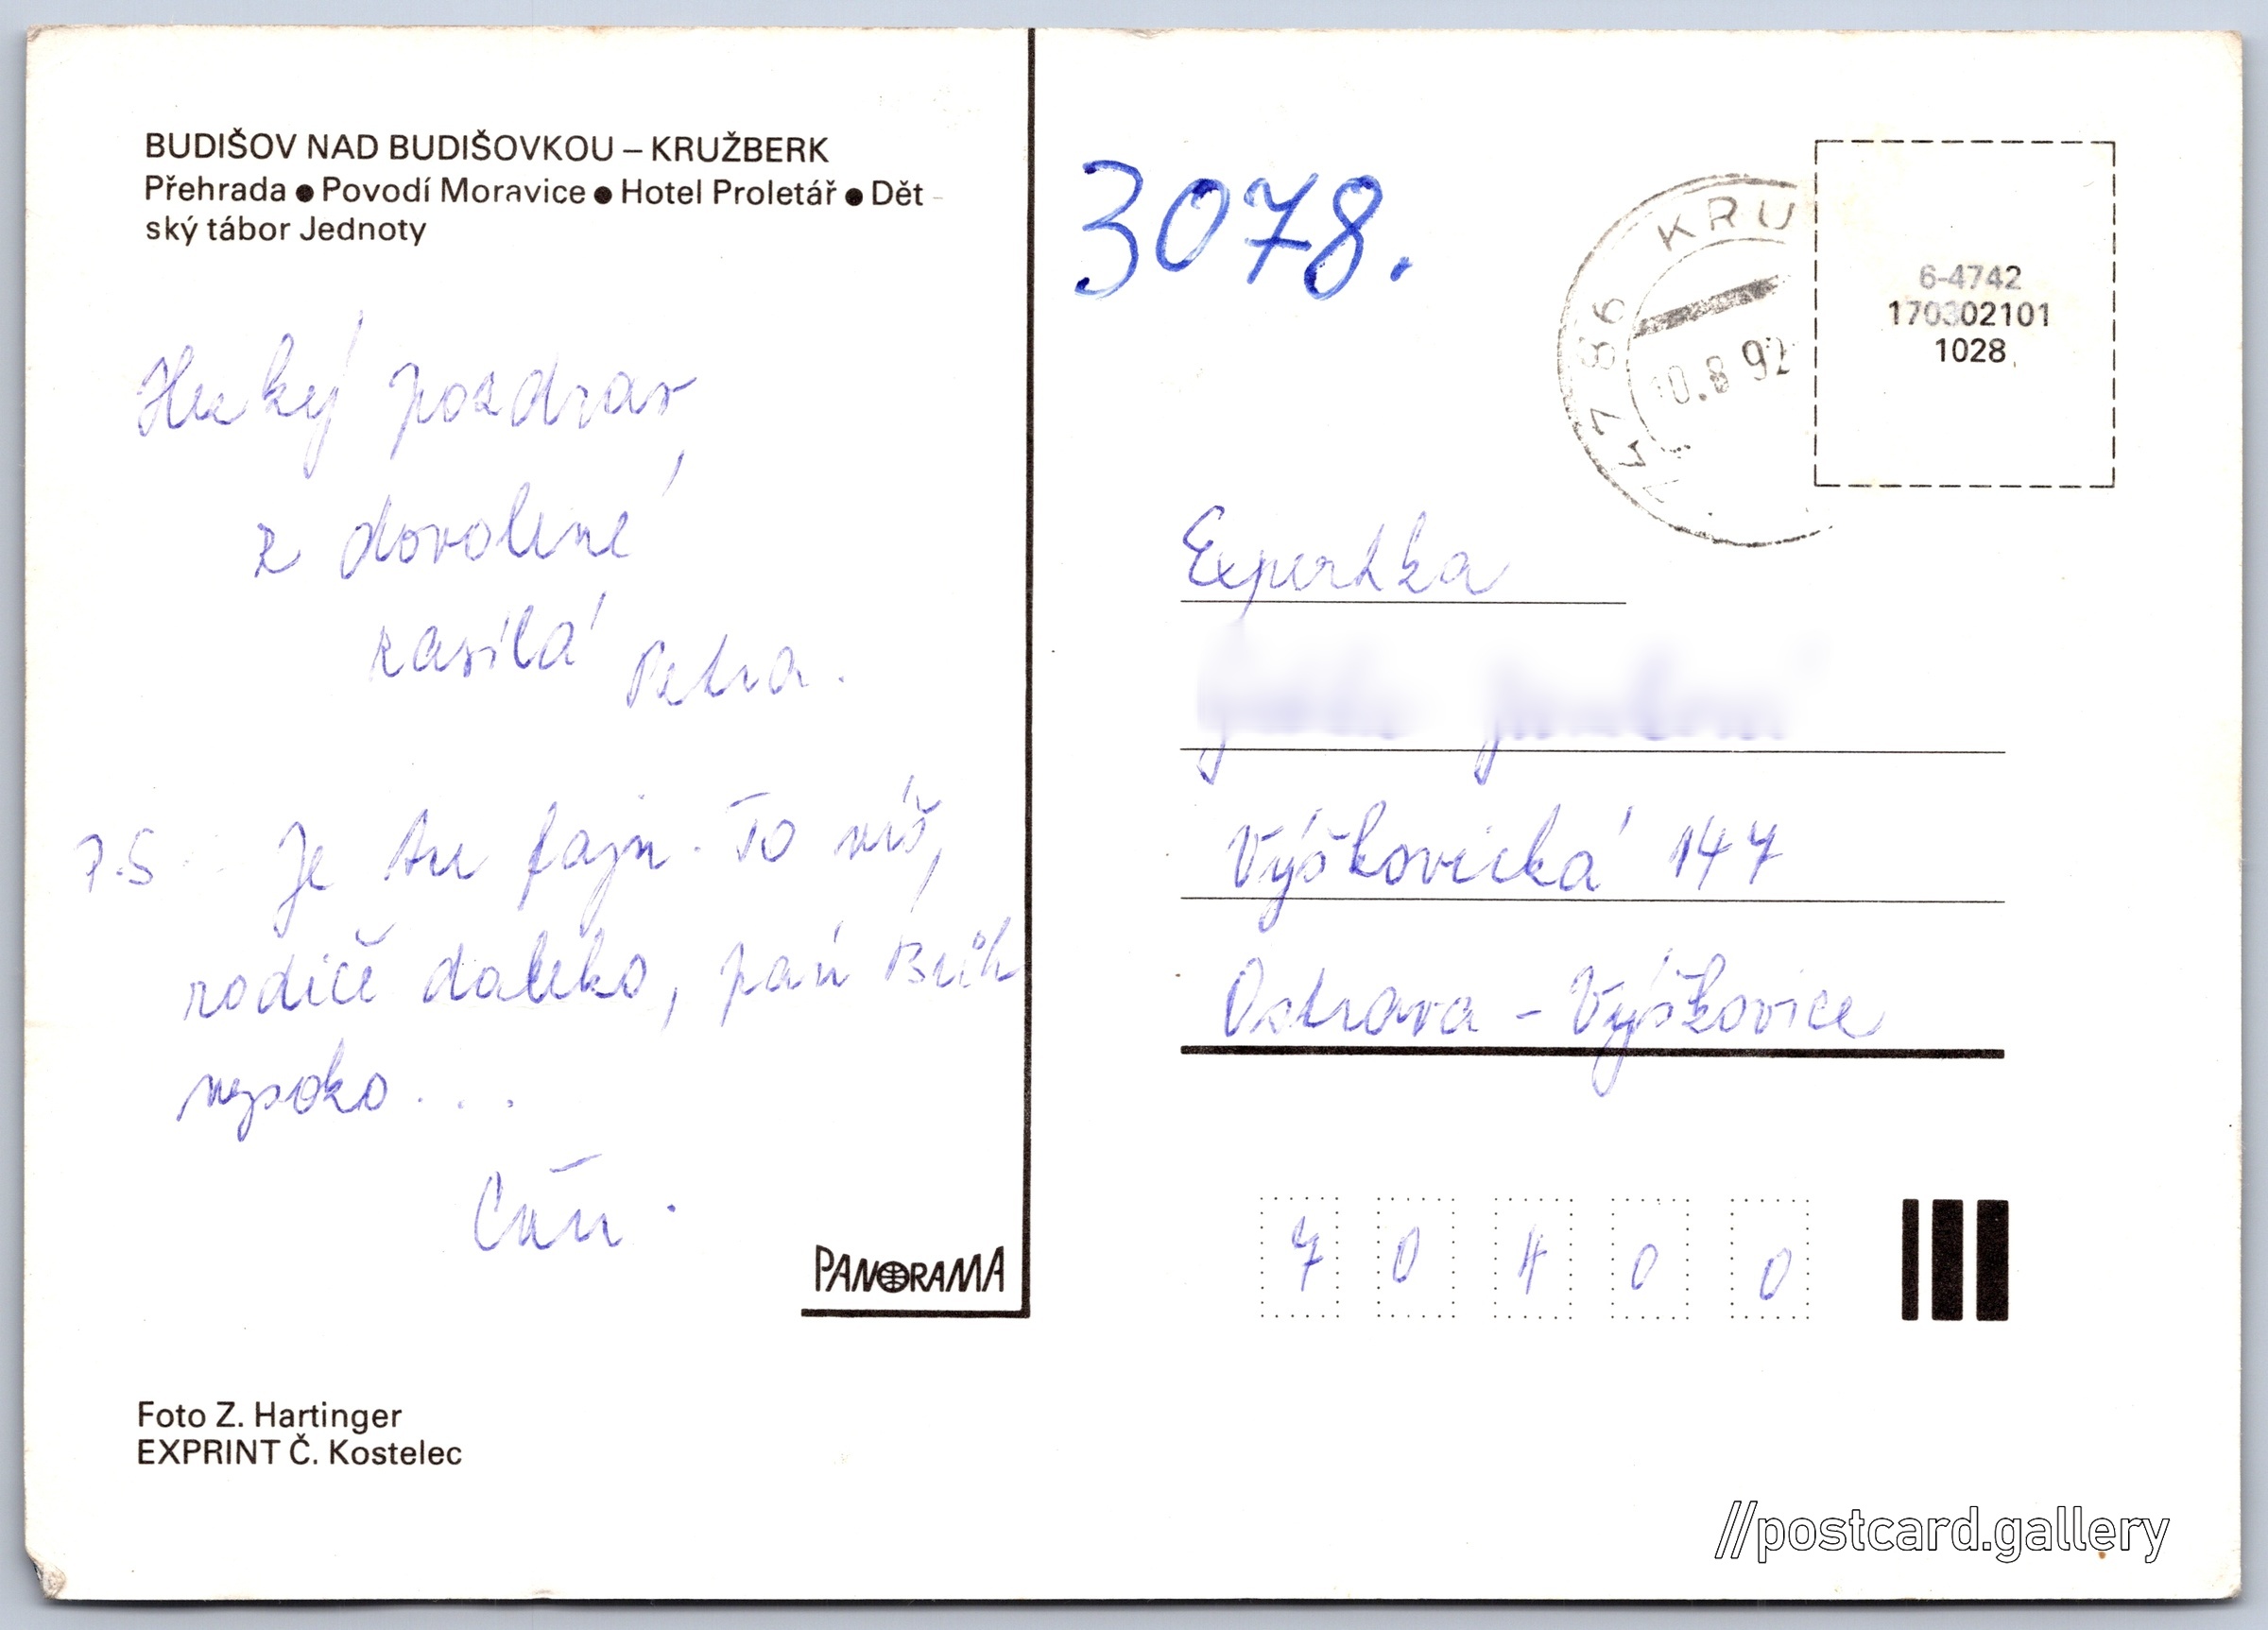 BUDIŠOV NAD BUDIŠOVKOU – KRUŽBERK
Přehrada ● Povodí Moravice ● Hotel Proletář ● Dět-
ský tábor Jednoty
Hezký pozdrav
z dovolené
zasílá Petra.
P.S Je tu fajn. To víš,
rodiče daleko, pán Bůh
vysoko...
PANORAMA
Foto Z. Hartinger
EXPRINT Č. Kostelec
3078.
KRU
747 86
10.8 92
6-4742
170302101
1028
Expertka
Výškovická 147
Ostrava - Výškovice
70400
//postcard.gallery